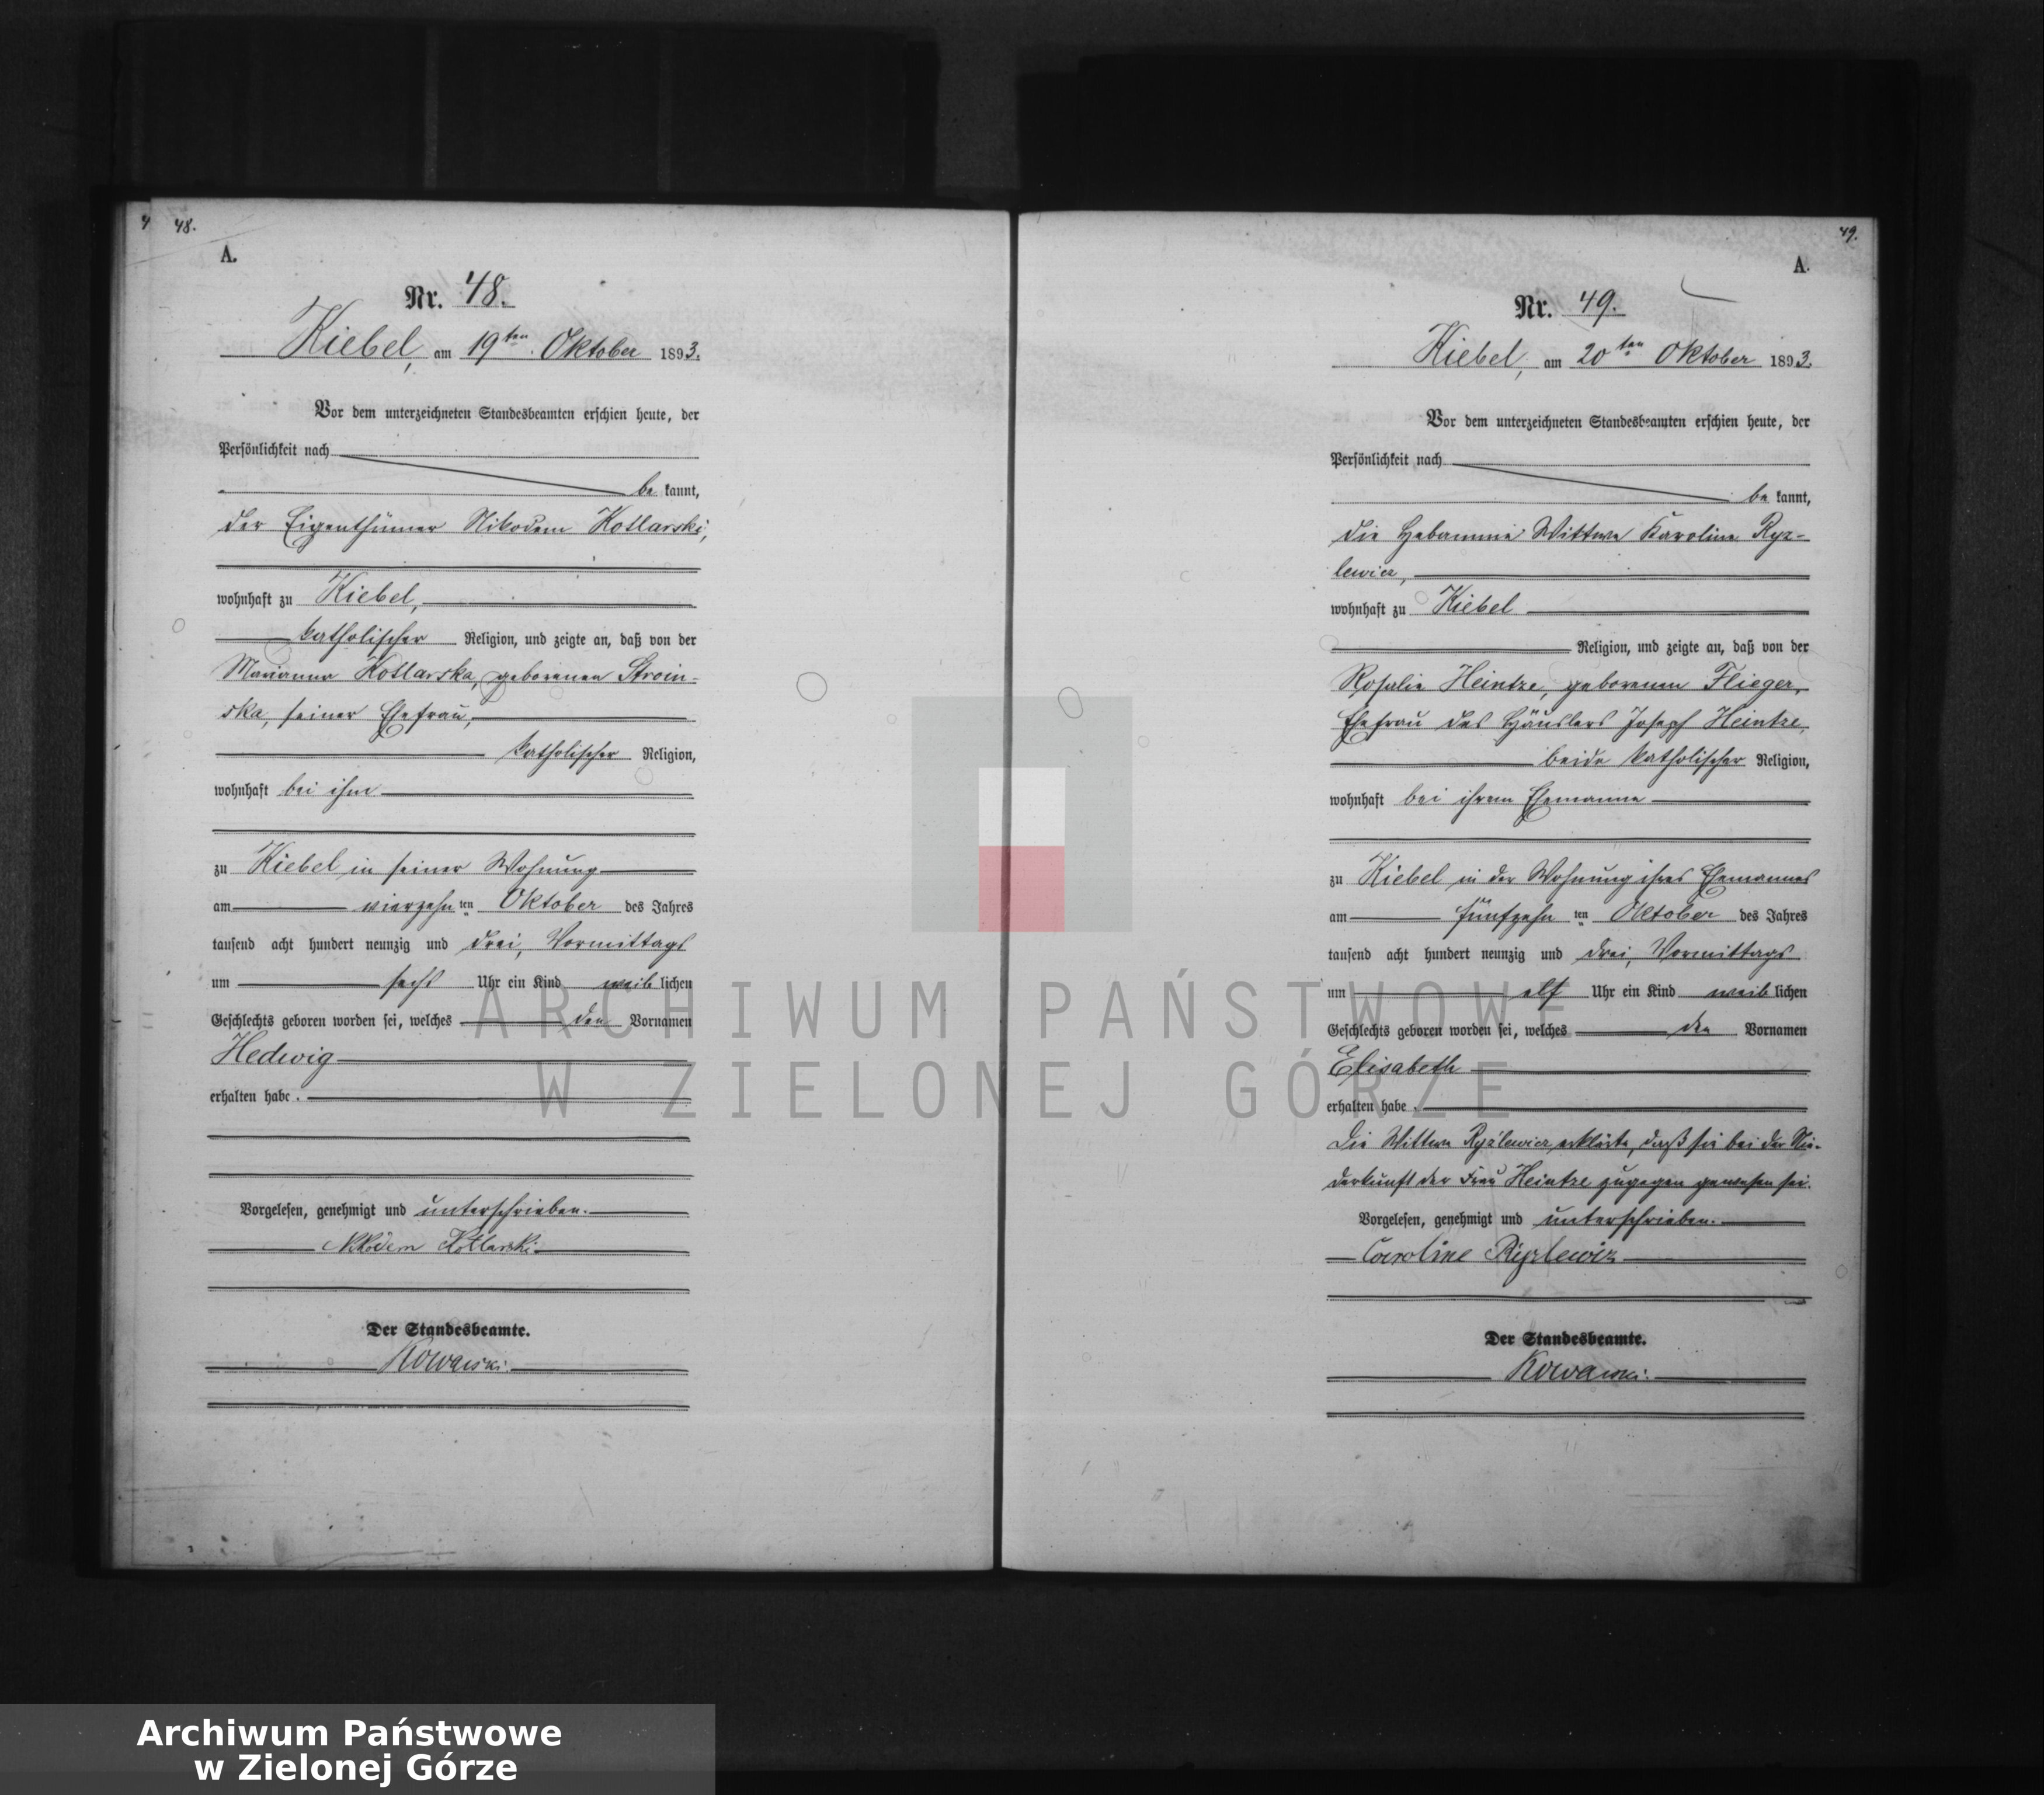 48.
A.
Nr. 48.
Kiebel, am 19ten Oktober 1893.
Vor dem unterzeichneten Standesbeamten erschien heute, der
Persönlichkeit nach
be kannt,
der Eigenthümer Nikodem Kotlarski,
wohnhaft zu Kiebel,
katholischer Religion, und zeigte an, daß von der
Marianna Kotlarska, geborenen Stroin-
ska, seiner Ehefrau,
katholischer Religion,
wohnhaft bei ihm
zu Kiebel in seiner Wohnung
am vierzehn ten Oktober des Jahres
tausend acht hundert neunzig und drei, Vormittags
um sechs Uhr ein Kind weib lichen
Geschlechts geboren worden sei, welches den Vornamen
Hedwig
erhalten habe.
Vorgelesen, genehmigt und unterschrieben.
Nikodem Kotlarski
Der Standesbeamte.
Kowalski.
49.
A.
Nr. 49.
Kiebel, am 20ten Oktober 1893.
Vor dem unterzeichneten Standesbeamten erschien heute, der
Persönlichkeit nach
be kannt,
die Hebamme Wittwe Karoline Ryz-
lewicz,
wohnhaft zu Kiebel
Religion, und zeigte an, daß von der
Rosalie Heintze, geborenen Flieger,
Ehefrau des Häuslers Joseph Heintze,
beide katholischer Religion,
wohnhaft bei ihrem Ehemanne
zu Kiebel in der Wohnung ihres Ehemannes
am fünfzehn ten Oktober des Jahres
tausend acht hundert neunzig und drei, Vormittags
um elf Uhr ein Kind weib lichen
Geschlechts geboren worden sei, welches den Vornamen
Elisabeth
erhalten habe.
Die Wittwe Ryzlewicz erklärte, daß sie bei der Nie-
derkunft der Frau Heintze zugegen gewesen sei.
Vorgelesen, genehmigt und unterschrieben.
Caroline Ryzlewicz
Der Standesbeamte.
Kowalski.
ARCHIWUM PAŃSTWOWE
W ZIELONEJ GÓRZE
Archiwum Państwowe
w Zielonej Górze